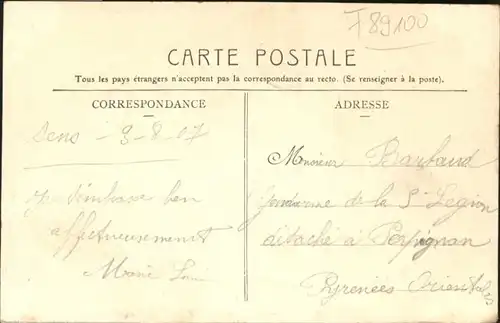 F89100
CARTE POSTALE
Tous les pays étrangers n'acceptent pas la correspondance au recto. (Se renseigner à la poste).
CORRESPONDANCE
ADRESSE
Sens - 9-8-07
Je t'embrasse bien
affectueusement
Marie
Monsieur
Gendarme de la Légion
détaché à Perpignan
Pyrenées Orientales